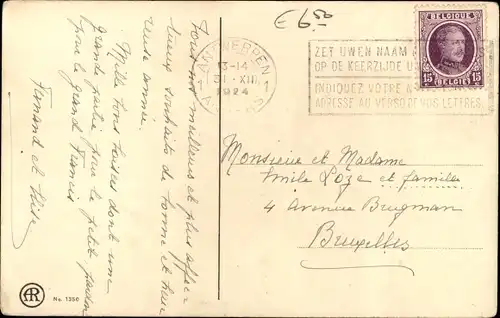 € 6.50
Tous nos meilleurs et plus affec-
tueux souhaits de bonne et heu-
reuse année.
Mille bons baisers dont une
grande partie pour le petit
pour le grand Francis
Fernand et
ANTWERPEN 1
13-14
31.XII
1924
ANVERS 1
ZET UWEN NAAM
OP DE KEERZIJDE
INDIQUEZ VOTRE
ADRESSE AU VERSO DE VOS LETTRES
BELGIQUE
15 15
BELGIË
Monsieur et Madame
Emile Loze et famille
4 Avenue Brugman
Bruxelles
AR
No. 1350